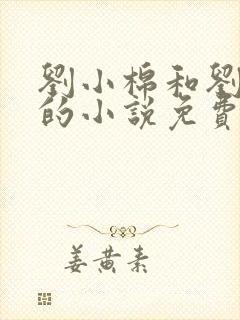 劉小棉和劉
的小說免費
姜黃素